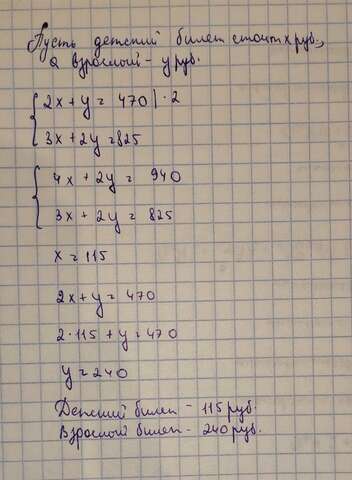 Пусть детский билет стоит x руб.,
а взрослый - y руб.
2x + y = 470 | · 2
3x + 2y = 825
4x + 2y = 940
3x + 2y = 825
x = 115
2x + y = 470
2 · 115 + y = 470
y = 240
Детский билет - 115 руб.
Взрослый билет - 240 руб.